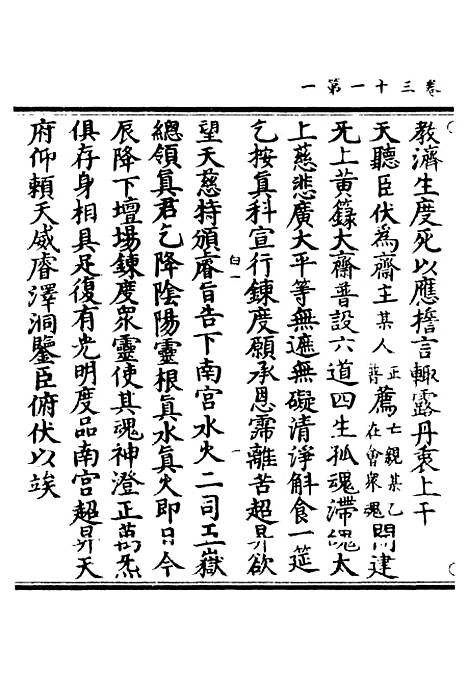 卷三十一第一
教濟生度死以應擔言輒露丹衷上干
天聽臣伏為齋主某人正普薦亡親某乙在會衆魂開建
无上黃籙大齋普設六道四生孤魂滯魄太
上慈悲廣大平等無遮無礙清淨斛食一筵
乞按眞科宣行鍊度願承恩霈離苦超昇欲
白一
望天慈特頒睿旨告下南宮水火二司五嶽
總領眞君乞降陰陽靈根眞水眞火即日今
辰降下壇場鍊度衆靈使其魂神澄正萬炁
俱存身相具足復有光明度品南宮超昇天
府仰賴天威睿澤洞鑒臣俯伏以竢